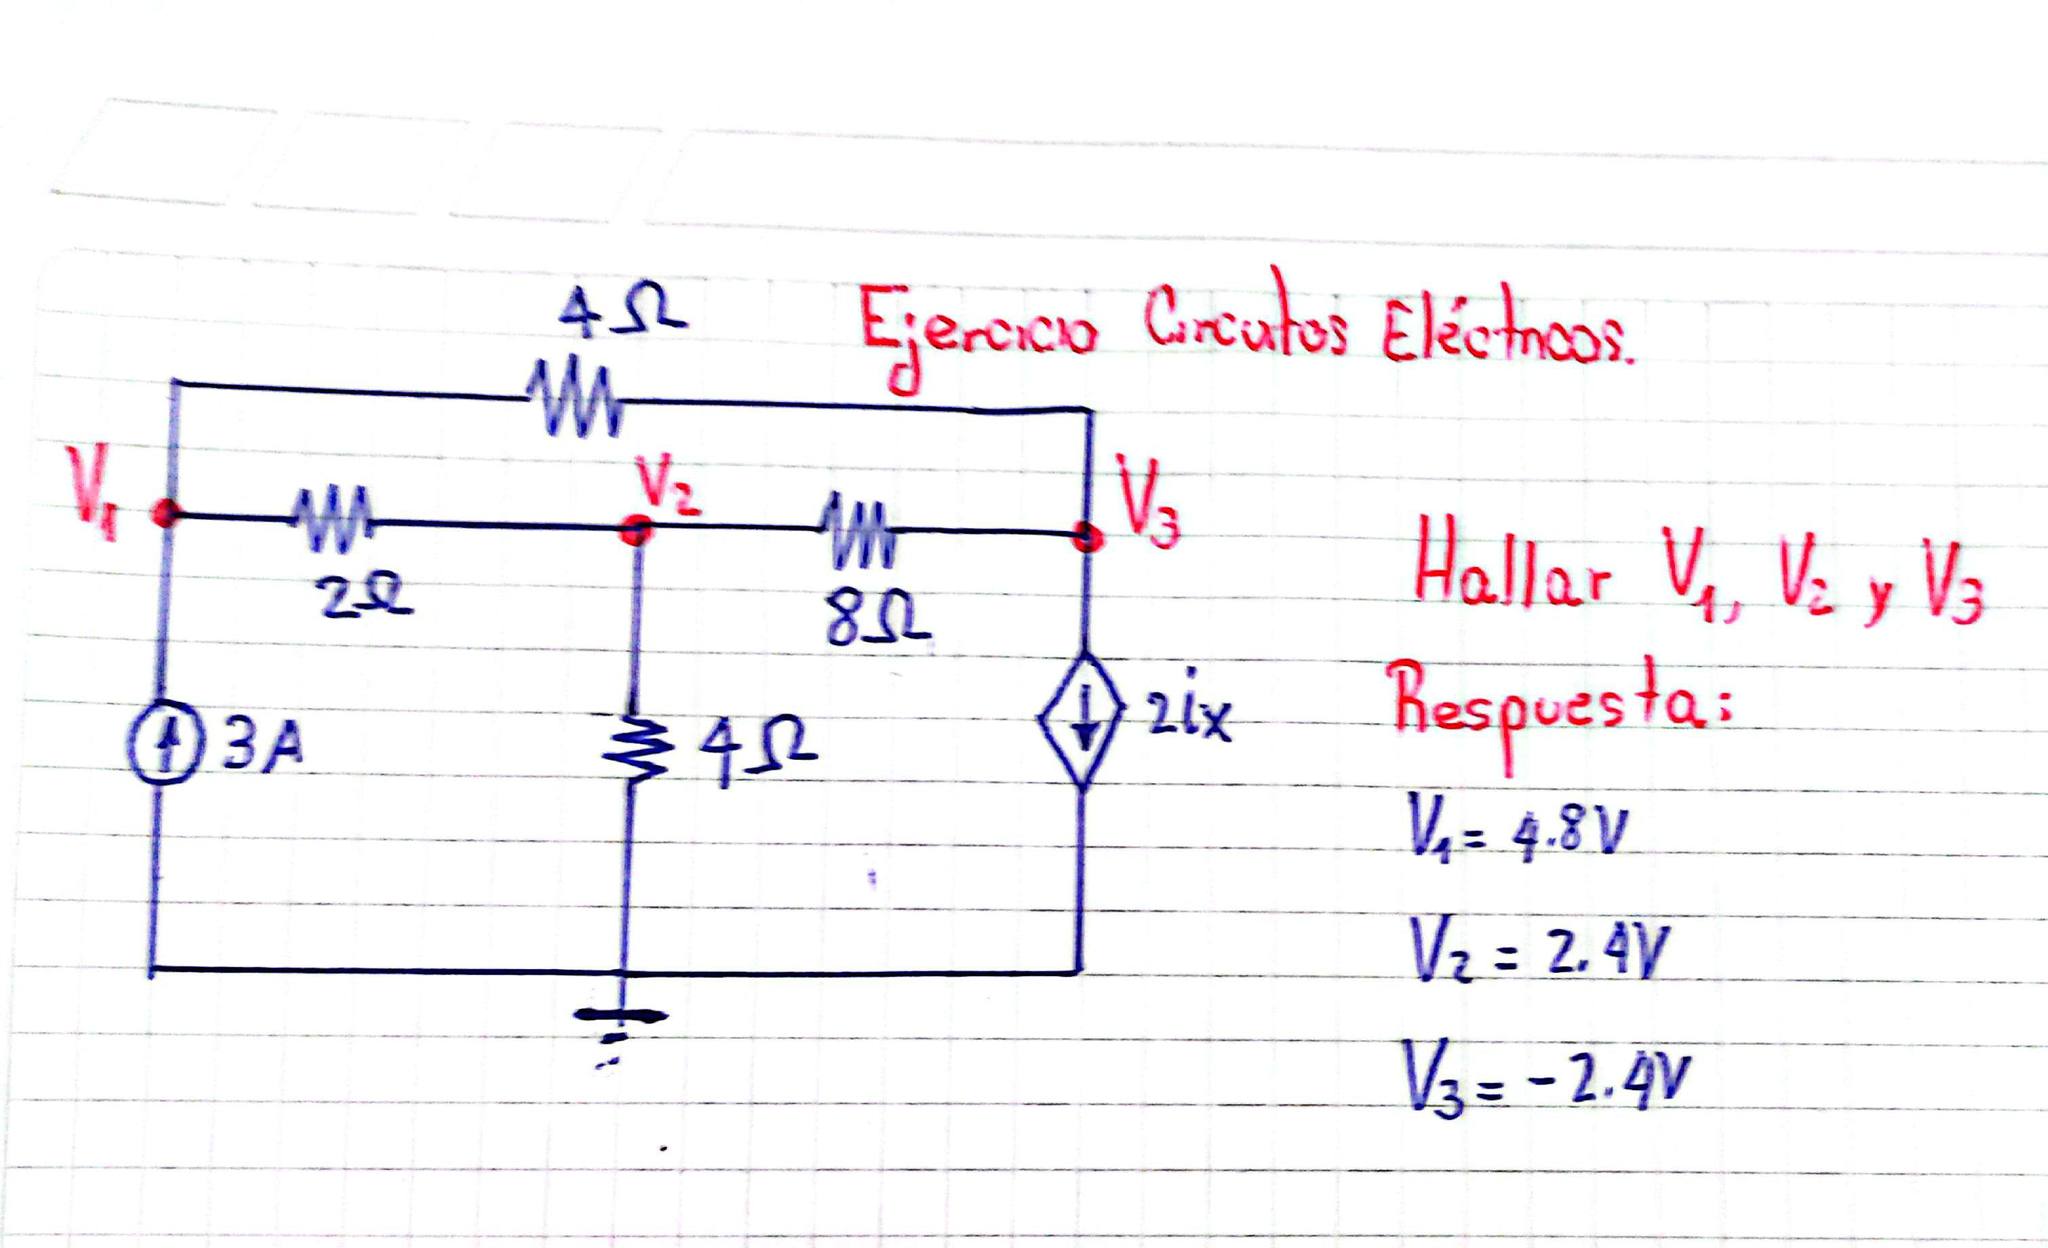 4Ω
Ejercicio Circuitos Eléctricos.
V1
V2
V3
2Ω
8Ω
3A
4Ω
2ix
Hallar V1, V2 y V3
Respuesta:
V1= 4.8V
V2 = 2.4V
V3= -2.4V